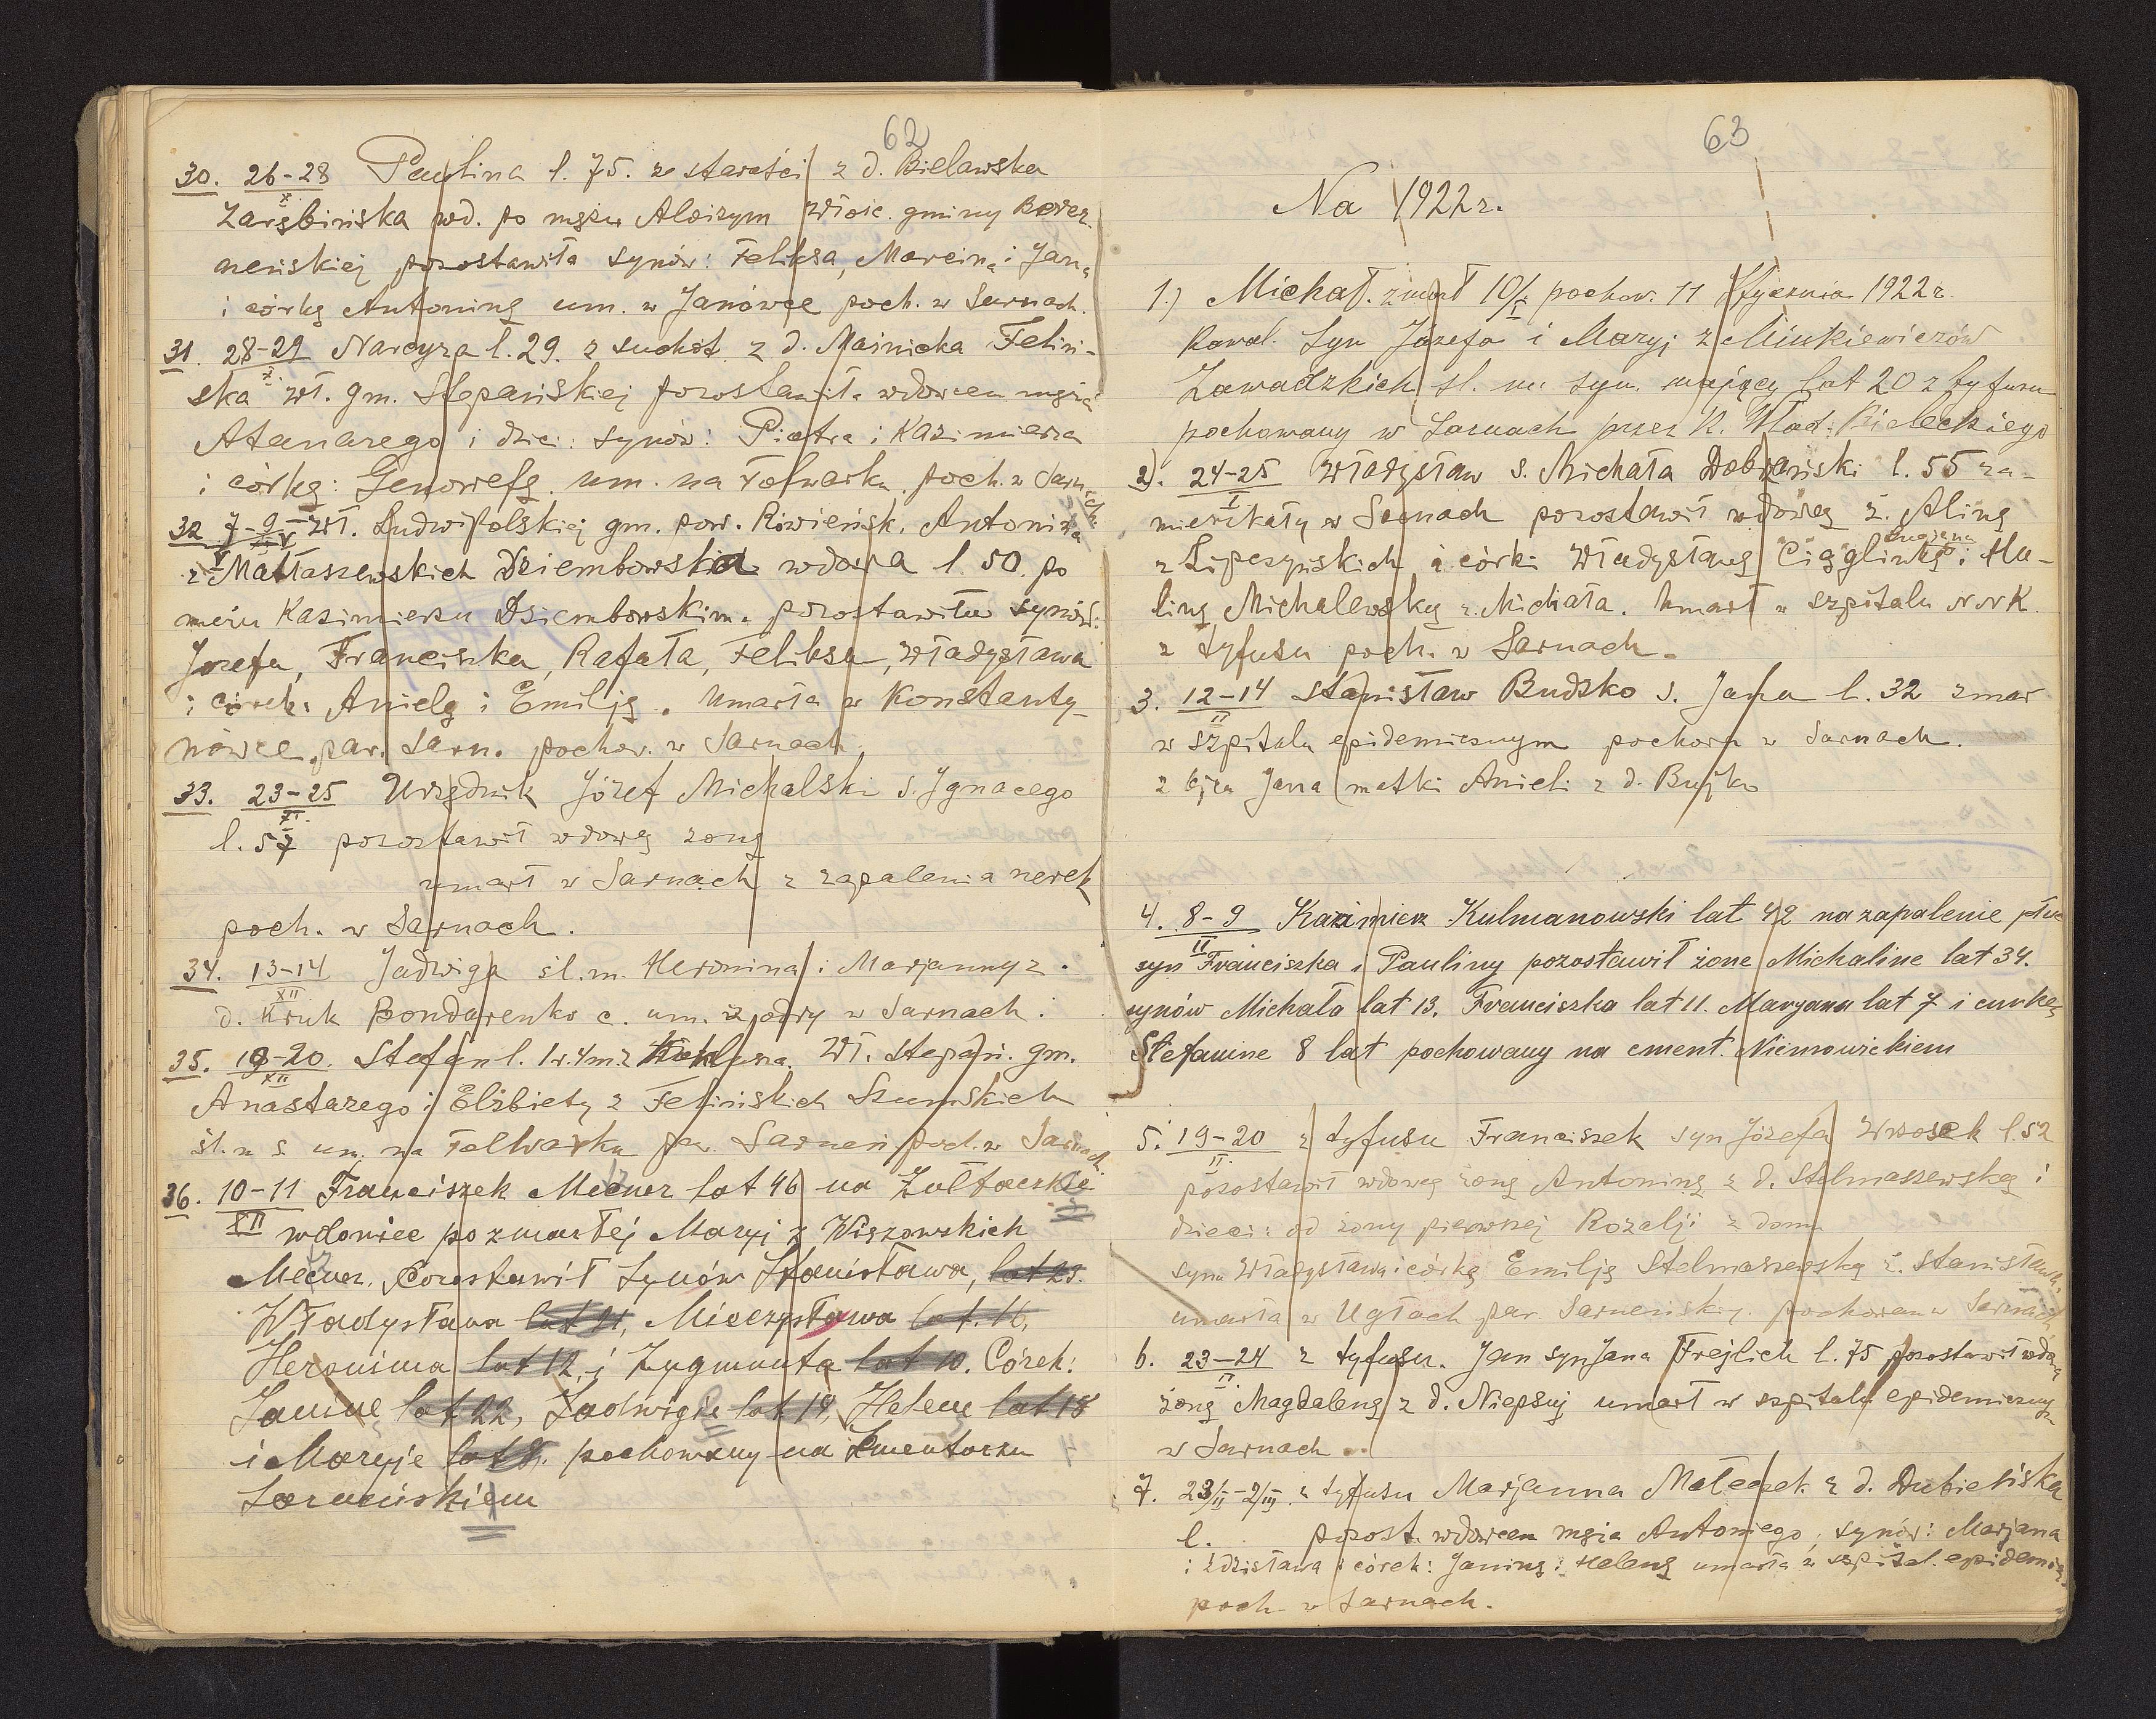 62
30. 26-28 Paulina l. 75. ze starości z d. Bielawska
X
Zarębińska wd. po mężu Aloizym włośc. gminy Berez-
neńskiej pozostawiła synów: Feliksa, Marcina i Jana
i córkę Antoninę um. w Janówce poch. w Sarnach.
31. 28-29 Narcyza l. 29. z suchot z d. Mainicka Feliń-
X
ska wł. gm. Stepańskiej pozostawił. wdowcem męża
Atanazego i dzieci: synów: Piotra i Kazimierza
i córkę: Genowefę. um. na Folwarku. poch. w Sarnach
32 7-9 wł. Ludwipolskiej gm. pow. Rówieńsk. Antonina
z Mattaszewskich Dziembowska wdowa l. 50. po
mężu Kazimierzu Dziembowskim. pozostawiła synów:
Jozefa, Franciszka, Rafała, Feliksa, Władysława
i córek: Anielę i Emilję. Umarła w Konstanty-
nówce par. Sarn. pochow. w Sarnach.
33. 23-25 Urzędnik Józef Michalski s. Ignacego
XI.
l. 57 pozostawił wdową żonę
umarł w Sarnach z zapalenia nerek
poch. w Sarnach.
34. 13-14 Jadwiga śl. m. Heronima i Marjanny z
XII
d. Kruk Bondarenko c. um. z odry w Sarnach.
35. 19-20. Stefan l. 1 r. 4 m. z wł. Stepań. gm.
XII
Anastazego i Elżbiety z Felińskich Szumskich
śl. m. s. um. na Folwarku par. Sarneń. poch. w Sarnach
36. 10-11 Franciszek Mecner lat 46 na
XII wdowiec po zmarłej Maryi z Wiszowskich
Mecner. Pozostawił Synów Stanisława, lat 23.
Władysława lat 21, Mieczysława lat. 16,
Heronima lat 12, i Zygmunta lat 10. Córek:
Janine lat 22, Jadwigie lat 19, Helene lat 18
i Maryje lat. pochowany na Zmentarzu
Sarneńskiem
63
Na 1922 r.
1.) Michał. zmarł 10/I pochow. 11 Stycznia 1922 r.
Kawal. Syn Józefa i Maryj z Minkiewiczów
Zawadzkich śl. m. syn. mający lat 20 z tyfusu
pochowany w Sarnach przez K. Wład. Bieleckiego
2). 24-25 Władysław s. Michała Dobrański l. 55 za-
I
mieszkały w Sarnach pozostawił wdową ż. Alinę
z Lipczyńskich i córki Władysławę Ciąglińską i Ha-
linę Michalewską ż. Michała. Umarł w szpitalu NNK.
z tyfusu poch. w Sarnach.
3. 12-14 Stanisław Budzko s. Jana l. 32 zmar
II
w szpitalu epidemicznym pochow w Sarnach.
z ojca Jana matki Anieli z d. Bujko
4. 8-9 Kazimierz Kulmanowski lat 42 na zapalenie płuc
II
syn Franciszka i Pauliny pozostawił żone Michaline lat 34.
synów Michała lat 13. Franciszka lat 11. Maryana lat 7 i curke
Stefanine 8 lat pochowany na cment. Niemowickiem
5. 19-20 z tyfusu Franciszek syn Józefa Wrzosek l. 52
II.
pozostawił wdową żonę Antoninę z d. Stelmaszewską i
dzieci: od żony pierwszej Rozalji z domu
syna Władysława i córkę Emilję Stelmaszewską ż. Stanisława
umarła w Ugłach par Sarneńskiej. pochowan w Sarnach
6. 23-24 z tyfusu. Jan syn Jana Frejlich l. 75 pozostawił wdową
II
żonę Magdalenę z d. Niepsuj umarł w szpitalu epidemiczny
w Sarnach.
7. 23/II-2/III. z tyfusu Marjanna Małeczek z d. Dubielińska
l. pozost. wdowcem męża Antoniego, synów: Marjana
i Zdzisława i córek: Janinę i Helenę umarła w szpital. epidemicz.
poch. w Sarnach.